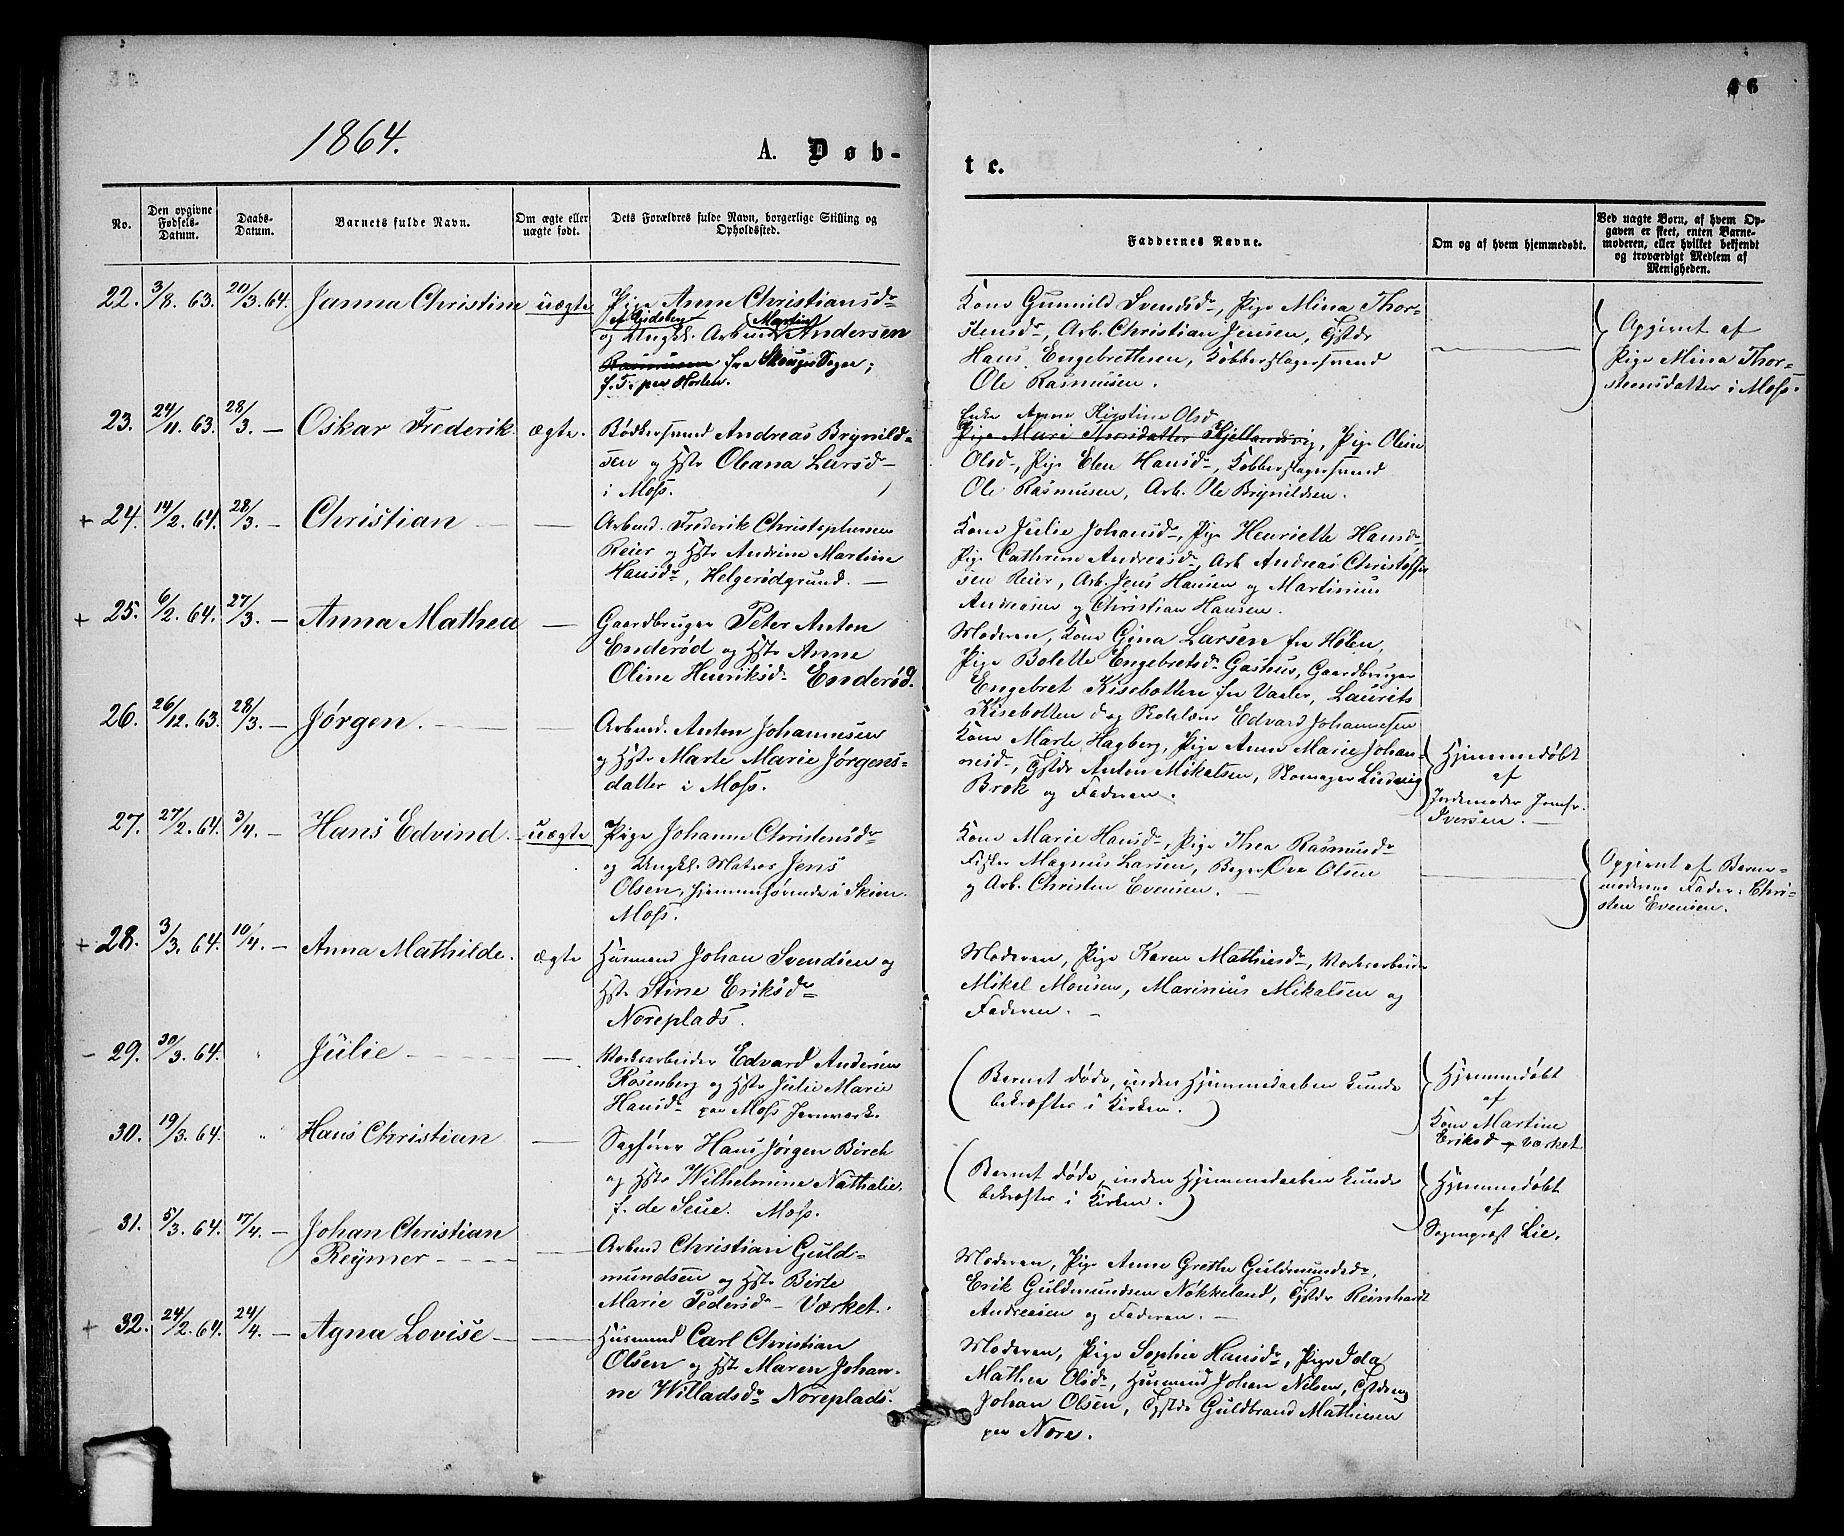 46
1864.
A. Døb-
te.
No.
Den opgivne Fødsels-Datum.
Daabs-Datum.
Barnets fulde Navn.
Om ægte eller uægte født.
Dets Forældres fulde Navn, borgerlige Stilling og Opholdssted.
Faddernes Navne.
Om og af hvem hjemmedøbt.
Ved uægte Børn, af hvem Opgaven er skeet, enten Barnemoderen, eller hvilket bekjendt og troværdigt Medlem af Menigheden.
22. 3/8. 63. 20/3. 64. Janna Christine uægte
Pige Anne Christiansdr
Martin
og Ungkl. Arbmd Andersen
Rasmussen fra Skouger Sogn;
f. T. paa Horten.
Kone Gunnild Svendsdr, Pige Mina Thor-
stensdr, Arb. Christian Jensen, Gstdr
Hans Engebrethsen, Kobberslagersvend
Ole Rasmusen.
Opgivet af
Pige Mina Thor-
steinsdatter i Moss.
23. 24/11. 63. 28/3. — Oskar Frederik. ægte.
Bødkersvend Andreas Brynild-
sen og Hstr Oleana Larsdr
i Moss.
Enke Anne Kirstine Olsd
Pige Mari Thorsdatter Kjellandsvig, Pige Olein
Olsdr, Pige Elen Hansdr, Kobberslagersvend
Ole Rasmusen, Arb. Ole Brynildsen.
+ 24. 14/2. 64. 28/3. — Christian — —
Arbmd. Frederik Christophersen
Reier og Hstr Andrine Martine
Hansdr, Helgerødgrund. —
Kone Julie Johansdr, Pige Henriette Hansdr
Pige Cathrine Andreasdr, Arb Andreas Christoffer
sen Reier, Arb. Jens Hansen og Martinius
Andreasen og Christian Hansen.
+ 25. 6/2. 64. 27/3. — Anna Mathea —
Gaardbruger Peter Anton
Enderød og Hstr Anne
Oline Henriksdr Enderød.
Moderen, Kone Gina Larsen fra Hølen,
Pige Bolette Engebretsdr Gashus, Gaardbruger
Engebret Kisebotten fra Vaaler, Laurits
Kisebotten og Skolelærer Edvard Johannesen
26. 26/12. 63. 28/3. — Jørgen. — —
Arbmd. Anton Johannesen
og Hstr Marte Marie Jørgens-
datter i Moss.
Kone Marte Hagberg, Pige Anne Marie Johan-
nesdr, Gstdr Anton Mikelsen, Skomager Ludvig
Brok og Faderen.
Hjemmedøbt
af
Jordemoder Jomfr.
Iversen. —
27. 27/2. 64. 3/4. — Hans Edvind. — uægte
Pige Johanne Christensdr
og Ungkl. Matros Jens
Olsen, hjemmehørende i Skien.
Moss.
Kone Marie Hansdr, Pige Thea Rasmusdr
Fisker Magnus Larsen, Bager Ove Olsen
og Arb. Christen Evensen. —
Opgivet af Barne-
moderens Fader: Chri-
sten Evensen.
+ 28. 3/3. 64. 10/4. — Anna Mathilde. ægte
Husmand Johan Svendsen og
Hstr Stine Eriksdr
Noreplads.
Moderen, Pige Karen Mathisdr, Værksarbeider
Mikel Monsen, Marinius Mikalsen og
Faderen. —
— 29. 30/3. 64. " Julie — —
Værksarbeider Edvard Andersen
Rosenberg og Hstr Julie Marie
Hansdr paa Moss Jernværk.
(Barnet døde, inden Hjemmedaaben kunde
bekræftes i Kirken.)
Hjemmedøbt
af
Kone Martine
Eriksd Værket
30. 19/3. 64. " Hans Christian —
Sagfører Hans Jørgen Birch
og Hstr Wilhelmine Nathalie
f. de Seue. Moss.
(Barnet døde, inden Hjemmedaaben kunde
bekræftes i Kirken.)
Hjemmedøbt
af
Sogneprest Lie.
31. 5/3. 64. 17/4. — Johan Christian
Reymer — —
Arbmd Christian Guld-
mundsen og Hstr Birte
Marie Pedersdr — Værket.
Moderen, Pige Anne Grethe Guldmundsdr,
Erik Guldmundsen Nøkkeland, Gstdr Reinhardt
Andreasen og Faderen. —
+ 32. 24/2. 64. 24/4. — Agna Lovise — —
Husmand Carl Christian
Olsen og Hstr Maren Johan-
ne Willadsdr Noreplads.
Moderen, Pige Sophie Hansdr, Pige Ida
Mathea Olsdr, Husmand Johan Nilsen, Gstdreng
Johan Olsen, Gstdr Guldbrand Mathisen
paa Nore.